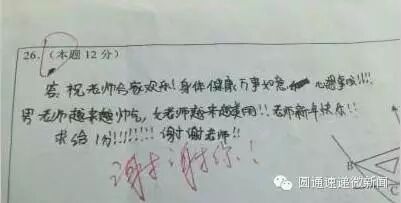 26.(本题12分)
答:祝老师合家欢乐!身体健康万事如意 心想事成!!!!
男老师越来越帅气,女老师越来越美丽!!老师新年快乐!!
求给1分!!!!!!!谢谢老师!!
谢谢你!!
B
圆通速递微新闻